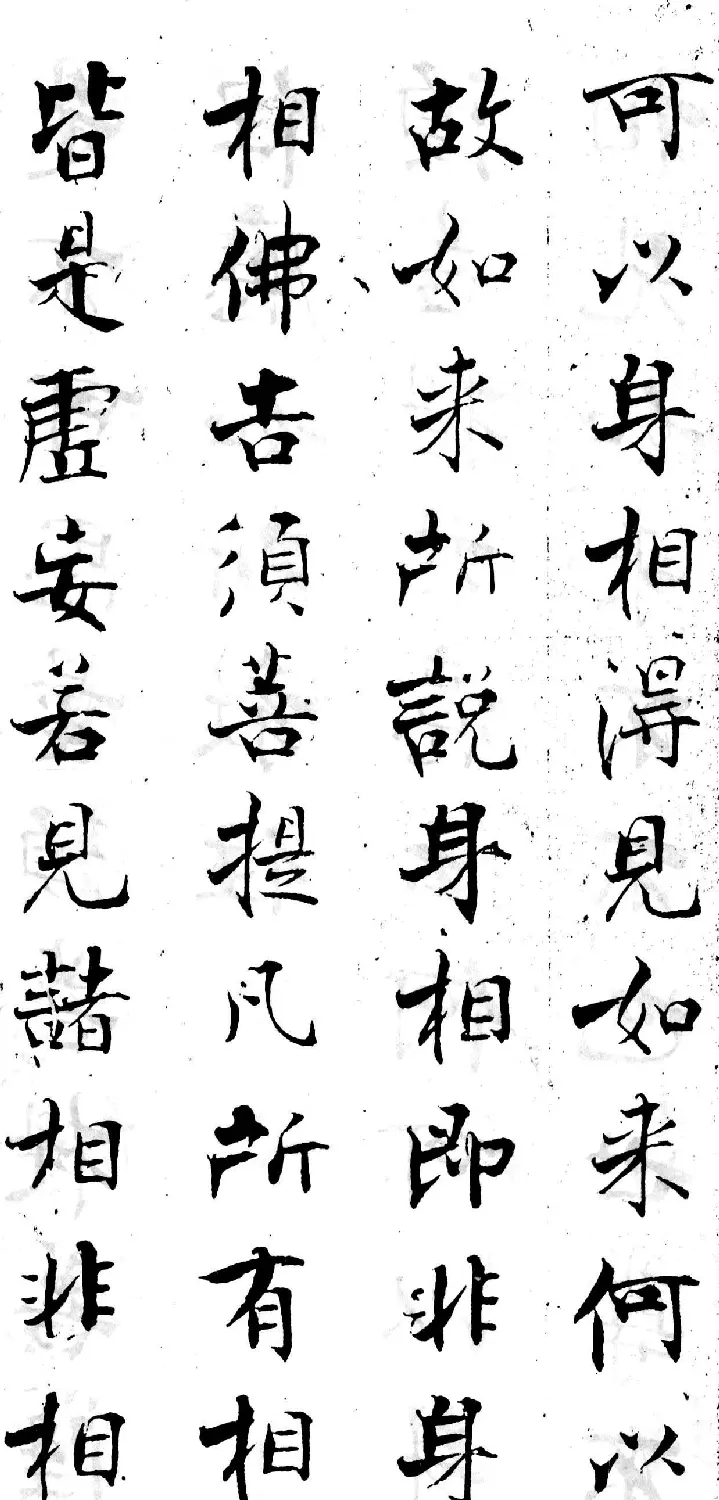 可以身相得見如来何以
故如来所説身相即非身
相佛告須菩提凡所有相
皆是虚妄若見諸相非相